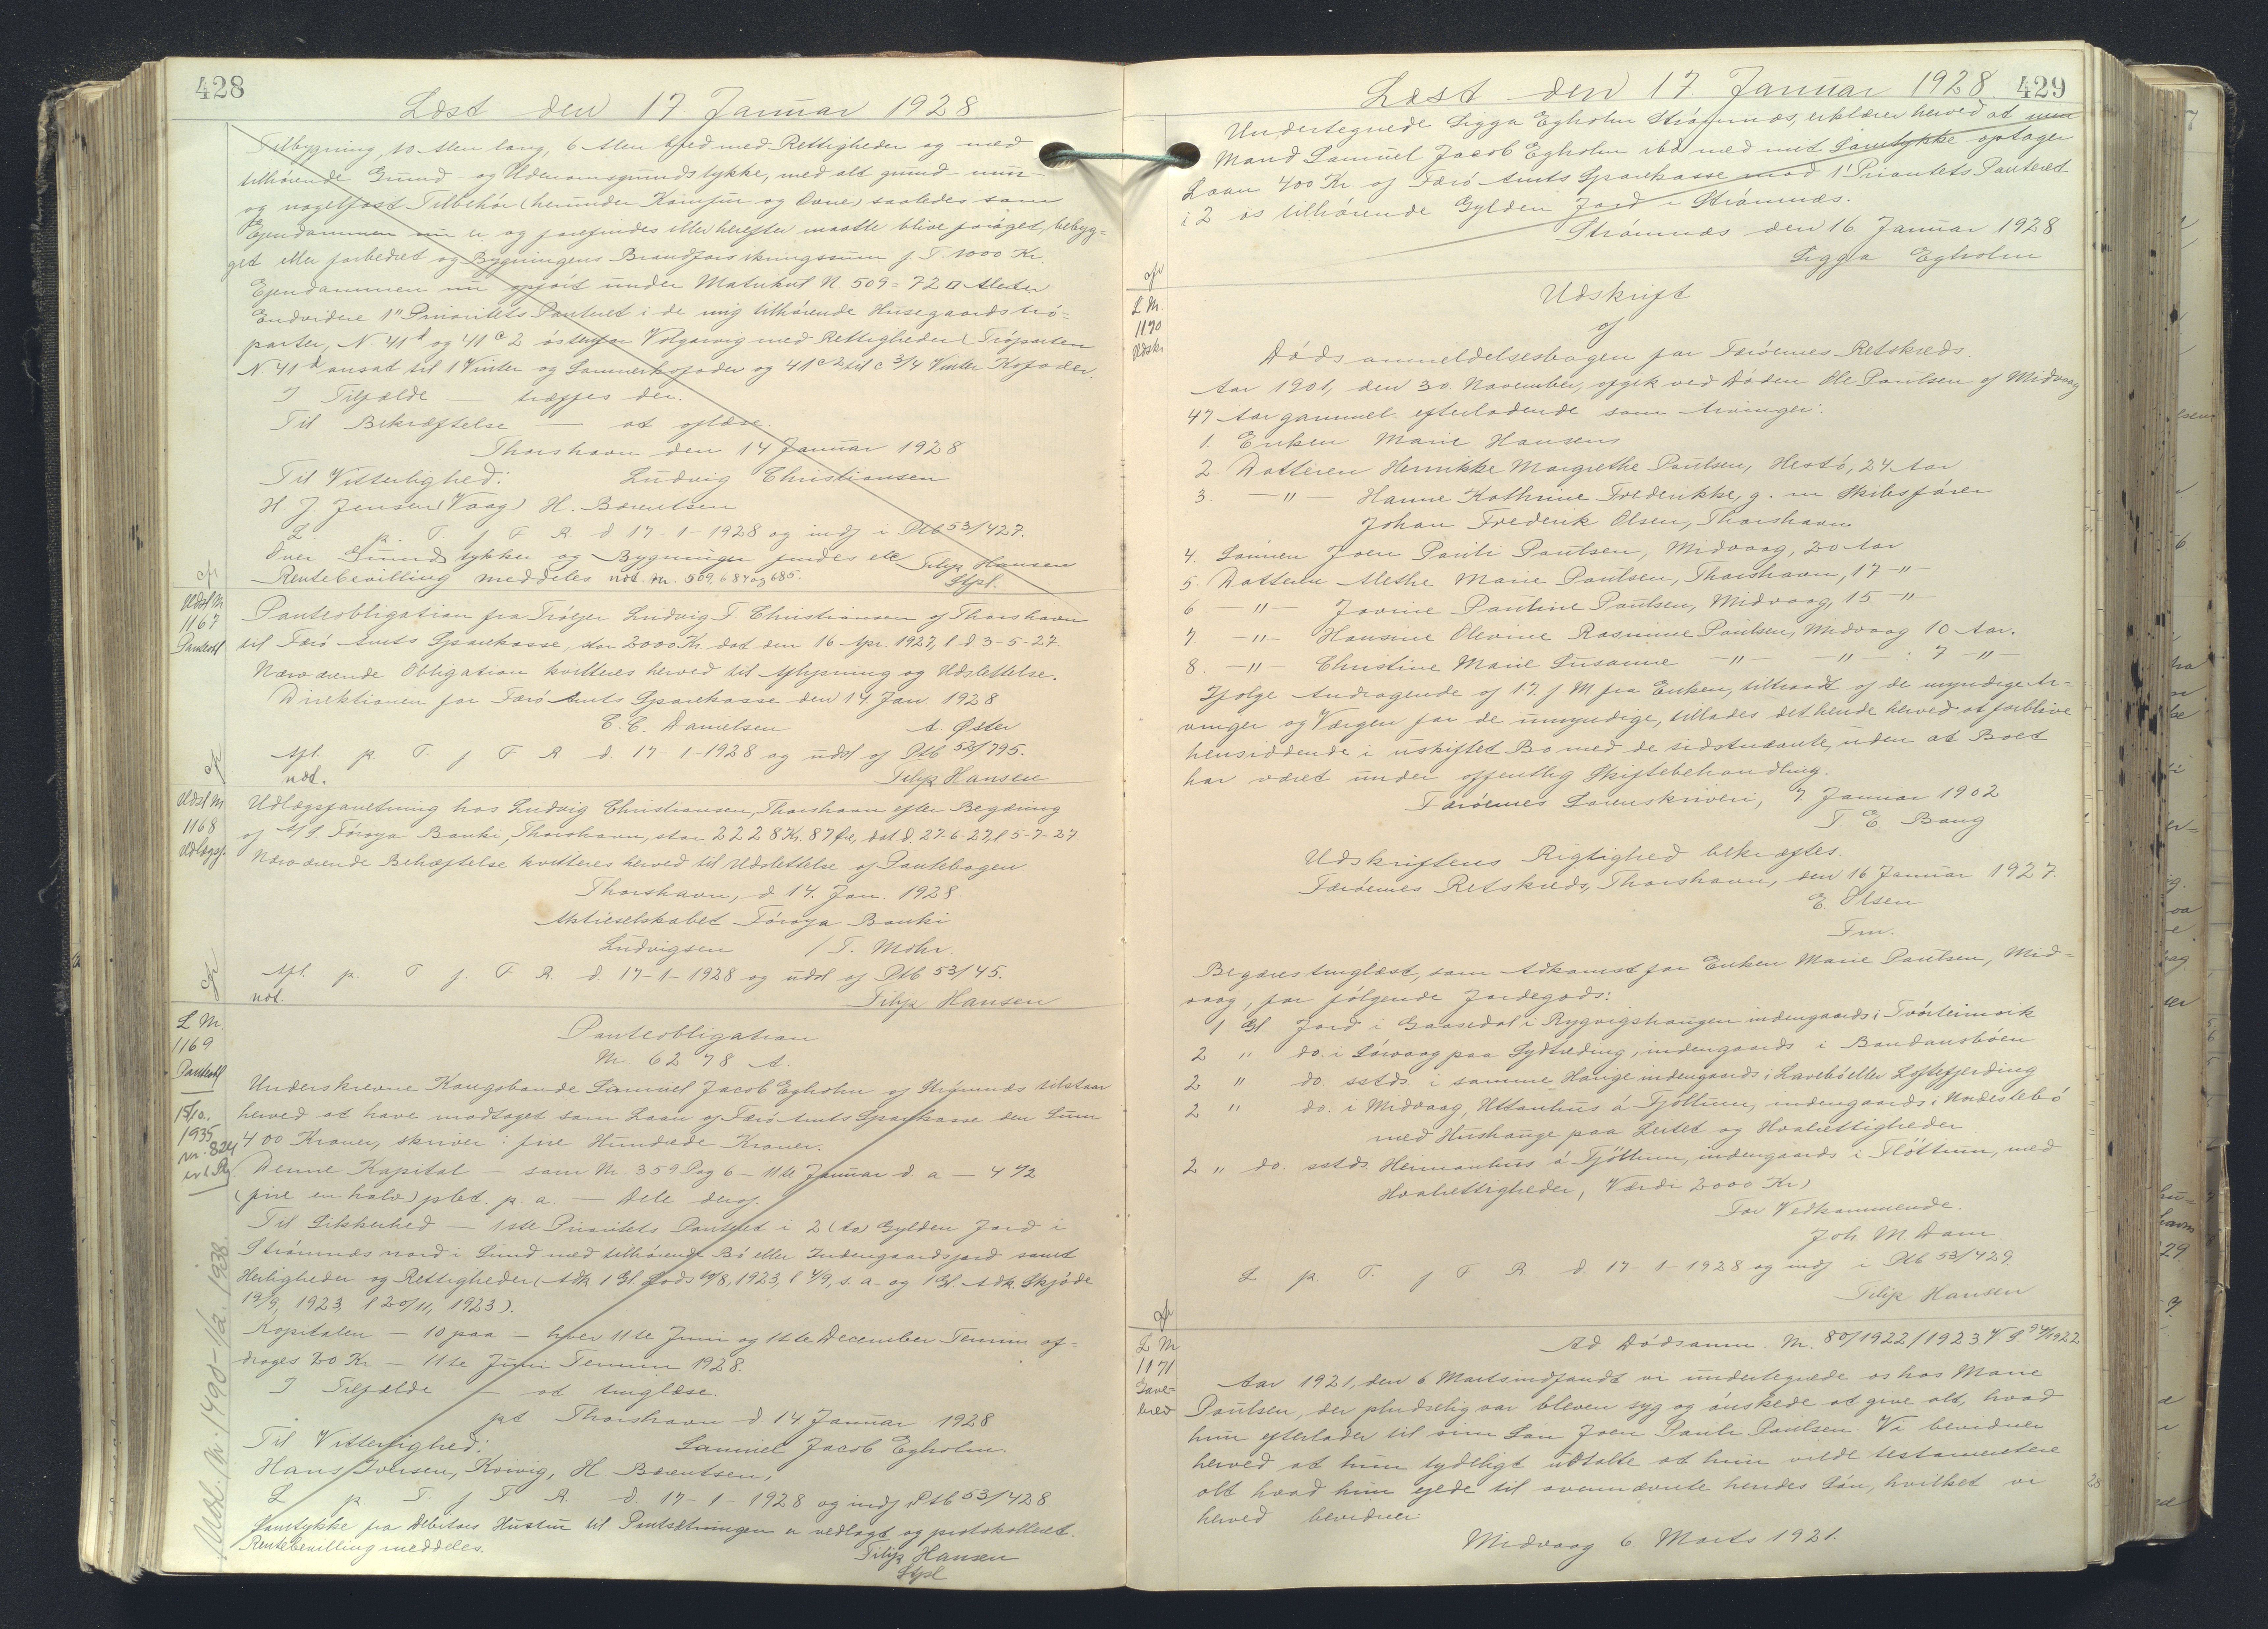 428
Læst den 17 Januar 1928
Tilbygning, 10 Alen lang, 6 Alen bred med Rettigheder og med
tilhørende Grund og Udenomsgrundstykke, med alt grund- mur-
og nagelfast Tilbehør (herunder Komfur og Ovne) saaledes som
Ejendommen nu er og forefindes eller herefter maatte blive forøget, bebyg-
get eller forbedret og Bygningens Brandforsikringssum f. T. 1000 Kr.
Ejendommen nu opført under Matrikul N. 509 = 72 □ Meter
Endvidere 1" Prioritets Panteret i de mig tilhørende Husegaardstrø-
parter, N. 41 d og 41 c 2 østenfor Volgarvig med Rettigheder (Trøparten
N 41 d ansat til 1 Vinter og Sommerkofoder og 41 c 2 til c 3/4 Vinter Kofoder.
I Tilfælde — træffes der.
Til Bekræftelse — at aflæse.
Thorshavn den 14 Januar 1928
Til Vitterlighed: Ludvig Christiansen
H. J. Jensen (Vaag) H. Barentsen
L p. T. f F R. d 17-1-1928 og indf i Ptb 53/427.
Over Grundstykker og Bygninger findes ele Filip Hansen
Rentebevilling meddeles not. Nr. 509, 684 og 685. Stpl.
Udsl M
1167
Panteobl
Panteobligation fra Trøejer Ludvig T Christiansen af Thorshavn
til Færø Amts Sparekasse, stor 2000 Kr. dat den 16. Apr. 1927, l d 3-5-27.
Nærværende Obligation kvitteres herved til Aflysning og Udslettelse.
Direktionen for Færø Amts Sparekasse den 14. Jan. 1928
E. C. Danielsen A. Øster
Afl. p. T. f F R. d. 17-1-1928 og udsl af Ptb 52/795.
not. Filip Hansen
Udsl M
1168
Udlægsf.
Udlægsforretning hos Ludvig Christiansen, Thorshavn efter Begæring
af A/S. Føroya Banki, Thorshavn, stor 2228 Kr. 87 Øre, dat d. 27-6-27, l 5-7-27
Nærværende Behæftelse kvitteres herved til Udslettelse af Pantebogen.
Thorshavn, d 14. Jan. 1928.
Aktieselskabet Føroya Banki
Ludvigsen / T. Mohr.
Afl. p. T f. F R. d 17-1-1928 og udsl af Ptb 53/45.
not. Filip Hansen
L M.
1169
Panteobl
15/10.
1935
nr. 824
Udsl. Nr. 1490 - 1/2. 1938.
Panteobligation
Nr. 6278 A.
Underskrevne Kongsbonde Samuel Jacob Egholm af Strømnæs tilstaar
herved at have modtaget som Laan af Færø Amts Sparekasse den Sum
400 Kroner, skriver: fire Hundrede Kroner.
Denne Kapital — som Nr. 359 Pag 6 — 11te Januar d. a — 4 1/2
(fire en halv) pCt. p. a. — dele deraf.
Til Sikkerhed — 1ste Prioritets Panteret i 2 (to) Gylden Jord i
Strømnæs nord i Sund med tilhørende Bø eller Indengaardsjord samt
Herligheder og Rettigheder (Adk 1 Gl. Gods 10/8, 1923, l 4/9, s. a. og 1 Gl. Adk. Skjøde
19/9, 1923, l 20/11, 1923).
Kapitalen — 10 paa — hver 11te Juni og 11te December Termin af-
drages 20 Kr — 11te Juni Termin 1928.
I Tilfælde — at tinglæse.
pt Thorshavn d 14 Januar 1928
Til Vitterlighed: Samuel Jacob Egholm.
Hans Iversen, Kvivig, H Barentsen,
L p. T. f F R. d 17-1-1928 og indf Ptb 53/428
Samtykke fra Debitors Hustru til Pantsætningen er vedlagt og protokolleret.
Rentebevilling meddeles. Filip Hansen
Stpl
Læst den 17. Januar 1928 429
Undertegnede Sigga Egholm Strømnæs, erklærer herved at min
Mand Samuel Jacob Egholm ibd med mit Samtykke optager
Laan 400 Kr. af Færø Amts Sparekasse mod 1' Prioritets Panteret
i 2 os tilhørende Gylden Jord i Strømnæs.
Strømnæs den 16 Januar 1928
Sigga Egholm
L M.
1170
Udskr
Udskrift
af
Dødsanmeldelsesbogen for Færøernes Retskreds.
Aar 1901, den 30. November, afgik ved Døden Ole Paulsen af Midvaag
47 Aar gammel. efterladende som Arvinger:
1. Enken Marie Hansens
2 Datteren Henrikke Margrethe Paulsen, Hestø, 24 Aar
3. — " — Hanne Kathrine Frederikke, g. m Skibsfører
Johan Frederik Olsen, Thorshavn
4. Sønnen Joen Pauli Paulsen, Midvaag, 20 Aar
5. Datteren Alethe Marie Paulsen, Thorshavn, 17 — " —
6 — " — Jovine Pauline Paulsen, Midvaag, 15 — " —
7. — " — Hansine Olevine Rasmine Paulsen, Midvaag 10 Aar.
8. — " — Christine Marie Susanne — " — " — : 7 — " —
Ifølge Andragende af 17. f M. fra Enken, tiltraadt af de myndige Ar-
vinger og Værgen for de umyndige, tillades det hende herved at forblive
hensiddende i uskiftet Bo med de sidstnævnte, uden at Boet
har været under offentlig Skiftebehandling.
Færøernes Sorenskriveri, 7. Januar 1902
T. E. Bang
Udskriftens Rigtighed bekræftes.
Færøernes Retskreds, Thorshavn, den 16 Januar 1927.
E. Olsen
Fm.
Begæres tinglæst, som Adkomst for Enken Marie Paulsen, Mid-
vaag, for følgende Jordegods:
1 Gl. Jord i Gaasedal i Rygvigshaugen indengaards i Tvørteimvik
2 " do. i Sørvaag paa Sydtreding, indengaards i Bandansbøen
2 " do. sstds. i samme Hauge indengaards i Lavebø eller Loftefjerding
2 " do. i Midvaag, Uttanhus á Tjöttum, indengaards i Nordestebø
med Hushauge paa Leitet og Hvalrettigheder
2 " do. sstds. Heimanhus á Tjöttum, indengaards i Fløttum, med
Hvalrettigheder, Værdi 2000 Kr)
For Vedkommende.
Joh. M. Dam.
L p. T. f F R. d 17-1-1928 og indf i Ptb 53/429.
Filip Hansen
L M
1171
Gave-
brev
Ad Dødsanm. Nr. 80/1922/1923 V S 94/1922
Aar 1921, den 6 Marts indfandt vi undertegnede os hos Marie
Paulsen, der pludselig var bleven syg og ønskede at give alt, hvad
hun efterlader til sin Søn Joen Pauli Paulsen. Vi bevidner
herved at hun tydeligt udtalte at hun vilde testamentere
alt hvad hun ejede til ovennævnte hendes Søn, hvilket vi
herved bevidner.
Midvaag 6. Marts 1921.